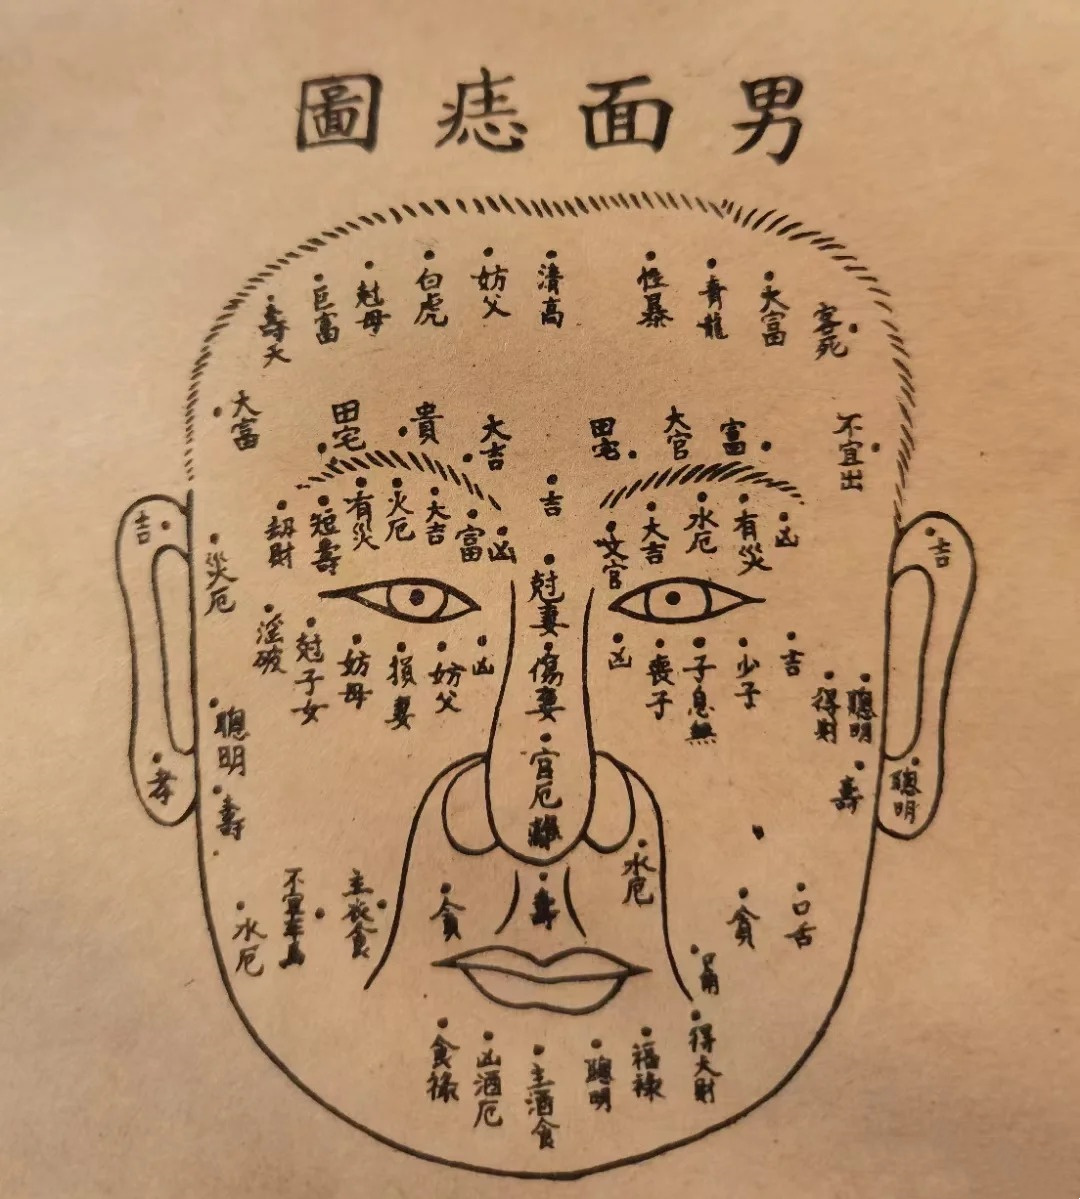 男面痣圖
清高
妨父
白虎
尅母
巨富
壽夭
性暴
青龍
大富
客死
大富
田宅
貴
大吉
田宅
大官
富
不宜出
吉
吉
劫財
短壽
有災
火厄
大吉
富
凶
文官
大吉
水厄
有災
凶
吉
災厄
尅妻
淫破
尅子女
妨母
損妻
妨父
凶
傷妻
凶
喪子
子息無
少子
吉
得財
聰明
聰明
孝
壽
官厄
壽
聰明
水厄
水厄
主衣食
貪
壽
貪
口舌
得大財
食祿
凶酒厄
主酒食
聰明
福祿